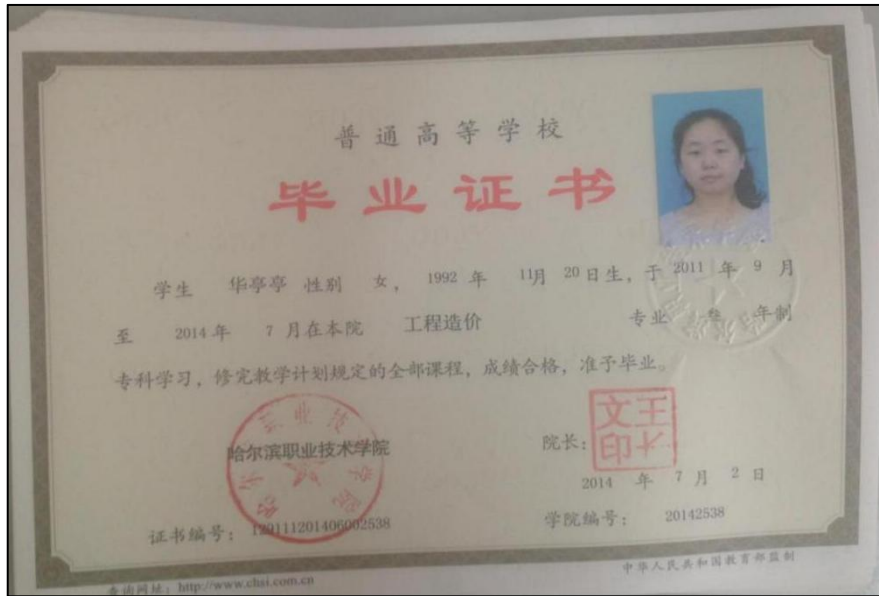 普通高等学校
毕业证书
学生 华亭亭 性别 女，1992 年 11月 20 日生，于 2011 年 9 月
至 2014 年 7 月在本院 工程造价 专业 叁 年制
专科学习，修完教学计划规定的全部课程，成绩合格，准予毕业。
哈尔滨职业技术学院
院长：
王长文印
2014 年 7 月 2 日
证书编号：129111201406002538
学院编号：20142538
查询网址：http://www.chsi.com.cn
中华人民共和国教育部监制